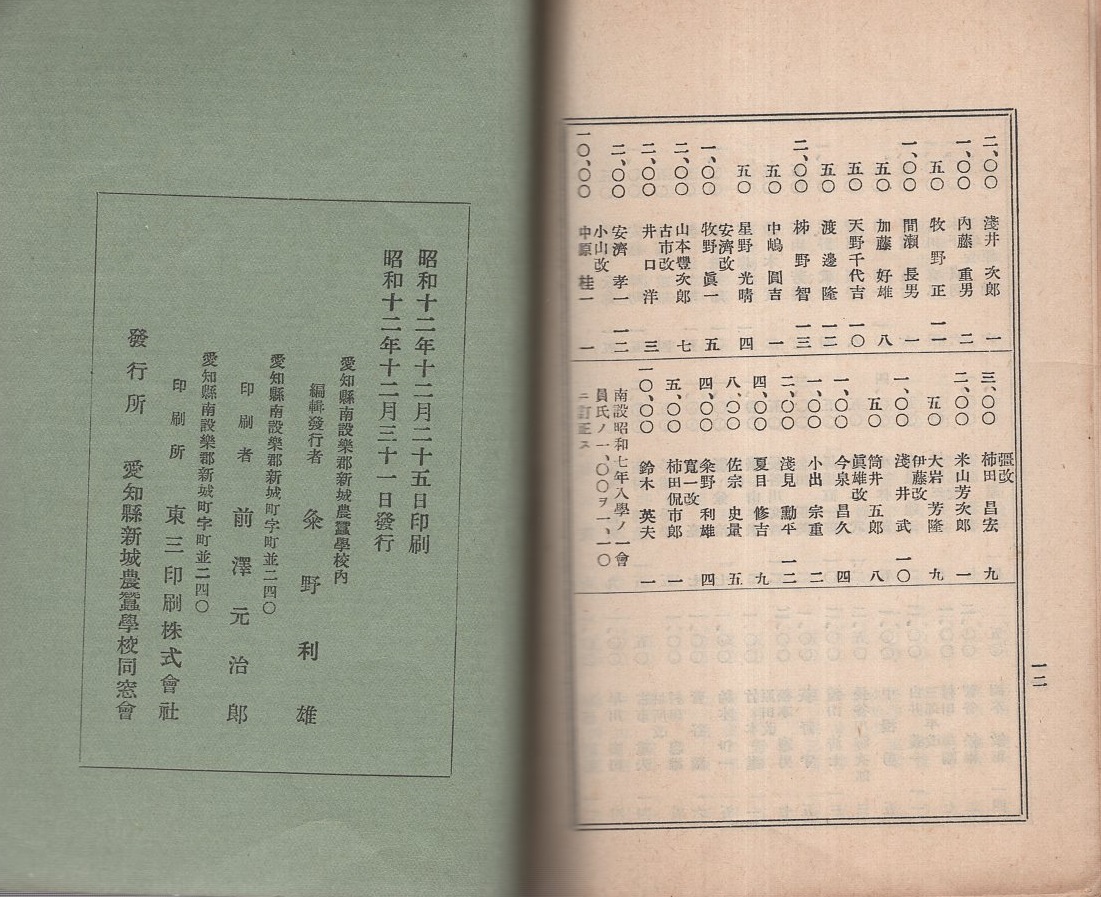 二、〇〇 淺井 次郎 一
一、〇〇 內藤 重男 二
五〇 牧野 正 一一
一、〇〇 間瀨 長男 一
五〇 加藤 好雄 八
五〇 天野千代吉 一〇
五〇 渡邊 隆 一二
二、〇〇 柿野 智 一三
五〇 中嶋 圓吉 一
五〇 星野 光晴 四
安濟改
一、〇〇 牧野 眞一 一五
二、〇〇 山本豐次郎 七
古市改
二、〇〇 井口 洋 三
二、〇〇 安濟 孝一 一二
小山改
一〇、〇〇 中源 桂一 一
彊改
三、〇〇 柿田 昌宏 九
二、〇〇 米山芳次郎 一
五〇 大岩 芳隆 九
伊藤改
一、〇〇 淺井 武 一〇
五〇 筒井 五郎 八
眞雄改
一、〇〇 今泉 昌久 四
一、〇〇 小出 宗重 二
二、〇〇 淺見 勳平 一二
四、〇〇 夏目 修吉 九
八、〇〇 佐宗 史量 五
四、〇〇 粂野 利雄 四
寬一改
五、〇〇 柿田侃市郎 一
一〇、〇〇 鈴木 英夫 一
南設昭和七年入學ノ一會
員氏ノ一、〇〇ヲ一、一〇
ニ訂正ス
一二
昭和十二年十二月二十五日印刷
昭和十二年十二月三十一日發行
愛知縣南設樂郡新城農蠶學校內
編輯發行者 粂野利雄
愛知縣南設樂郡新城町字町並二四〇
印刷者 前澤元治郎
愛知縣南設樂郡新城町字町並二四〇
印刷所 東三印刷株式會社
發行所 愛知縣新城農蠶學校同窓會